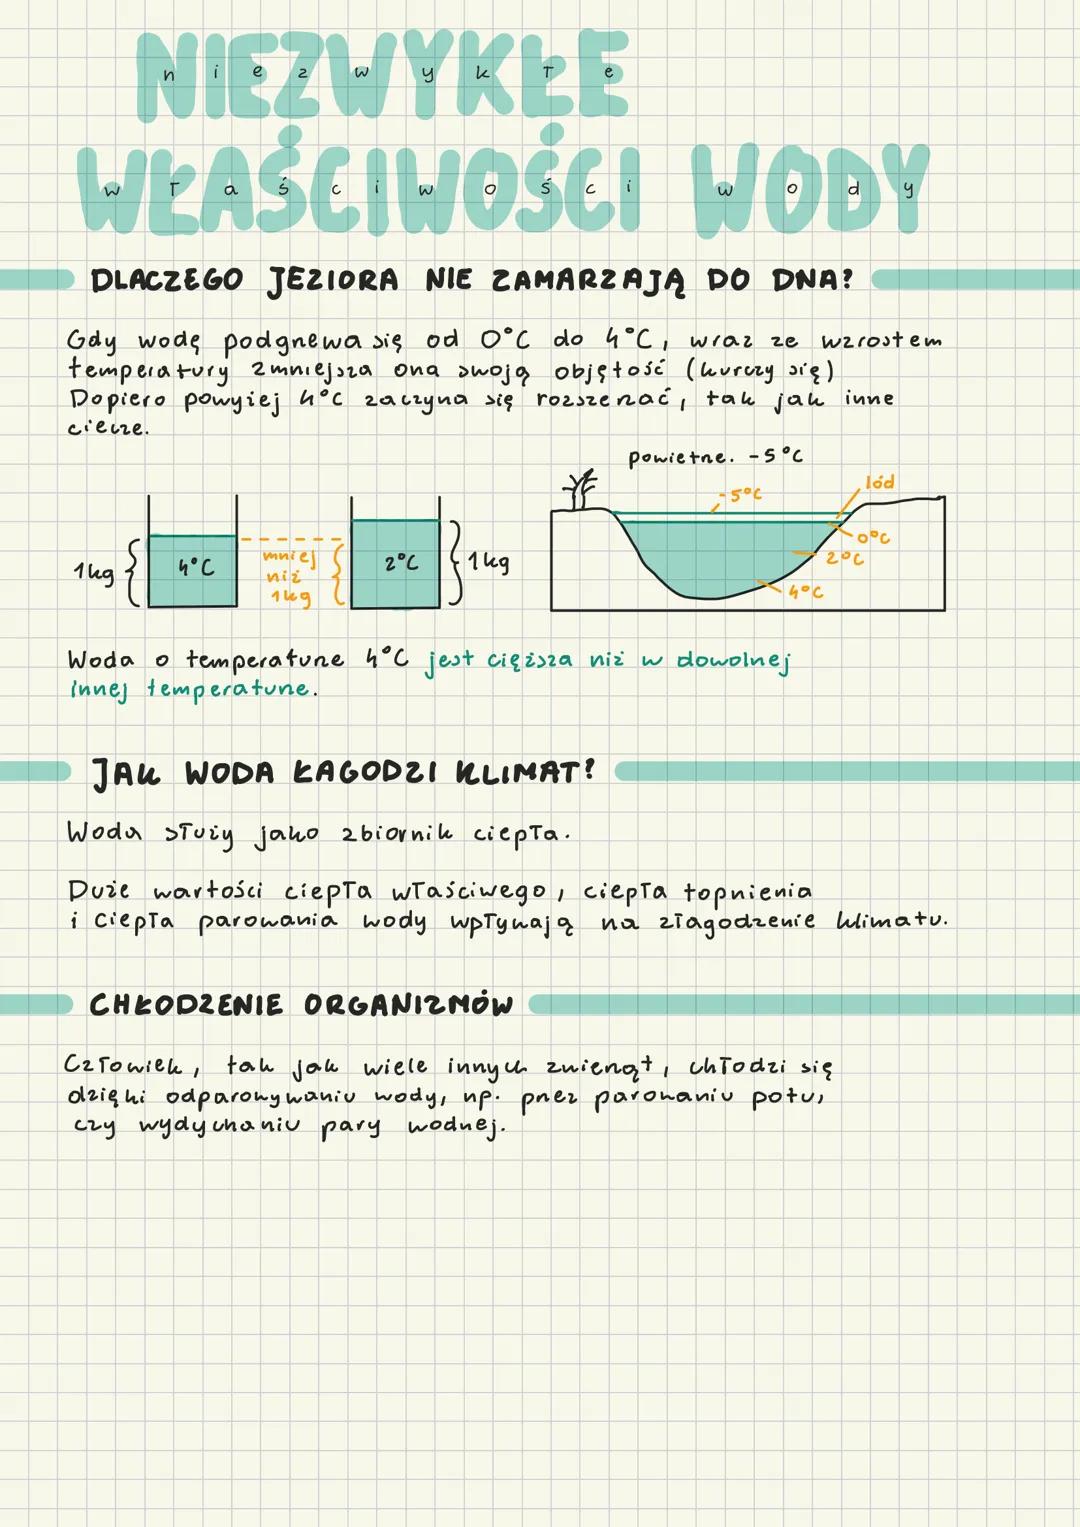 NIEZWYKŁE
n i e z w y k ł e
WŁAŚCIWOŚCI WODY
w ł a ś c i w o ś c i w o d y
DLACZEGO JEZIORA NIE ZAMARZAJĄ DO DNA?
Gdy wodę podgrzewa się od 0°C do 4°C, wraz ze wzrostem
temperatury zmniejsza ona swoją objętość (kurczy się)
Dopiero powyżej 4°C zaczyna się rozszerzać, tak jak inne
ciecze.
powietrze. -5°C
-5°C
lód
0°C
2°C
4°C
1kg
4°C
mniej
niż
1kg
2°C
1kg
Woda o temperaturze 4°C jest cięższa niż w dowolnej
innej temperaturze.
JAK WODA ŁAGODZI KLIMAT?
Woda służy jako zbiornik ciepła.
Duże wartości ciepła właściwego, ciepła topnienia
i ciepła parowania wody wpływają na złagodzenie klimatu.
CHŁODZENIE ORGANIZMÓW
Człowiek, tak jak wiele innych zwierząt, chłodzi się
dzięki odparowywaniu wody, np. przez parowaniu potu,
czy wydychaniu pary wodnej.